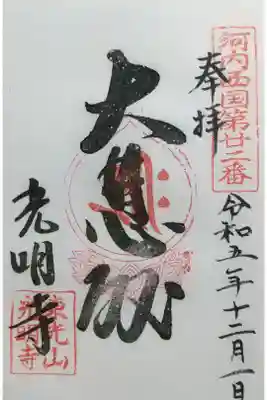 河内西国第廿二番
奉拝
令和五年十二月一日
大悲殿
光明寺
光明寺